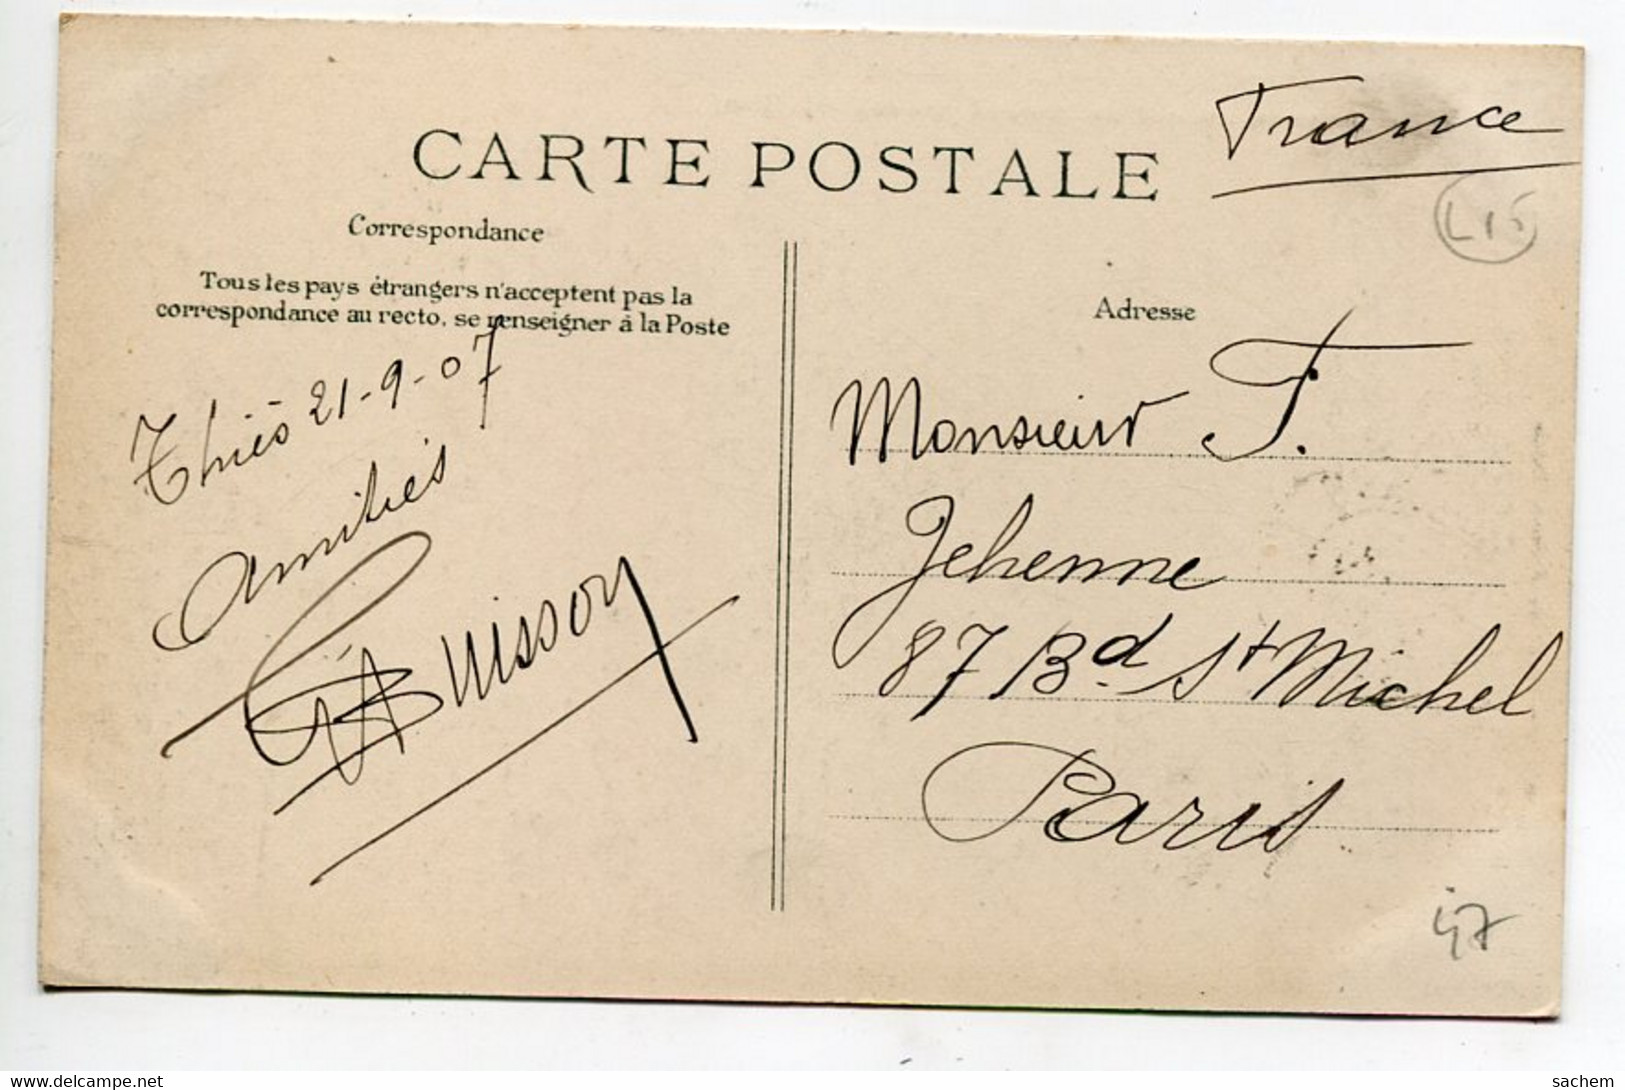 CARTE POSTALE
France
L15
Correspondance
Tous les pays étrangers n'acceptent pas la
correspondance au recto, se renseigner à la Poste
Thiès 21-9-07
Amitiés
Buisson
Adresse
Monsieur F.
Jehenne
87 Bd St Michel
Paris
47
delcampe.net
sachem